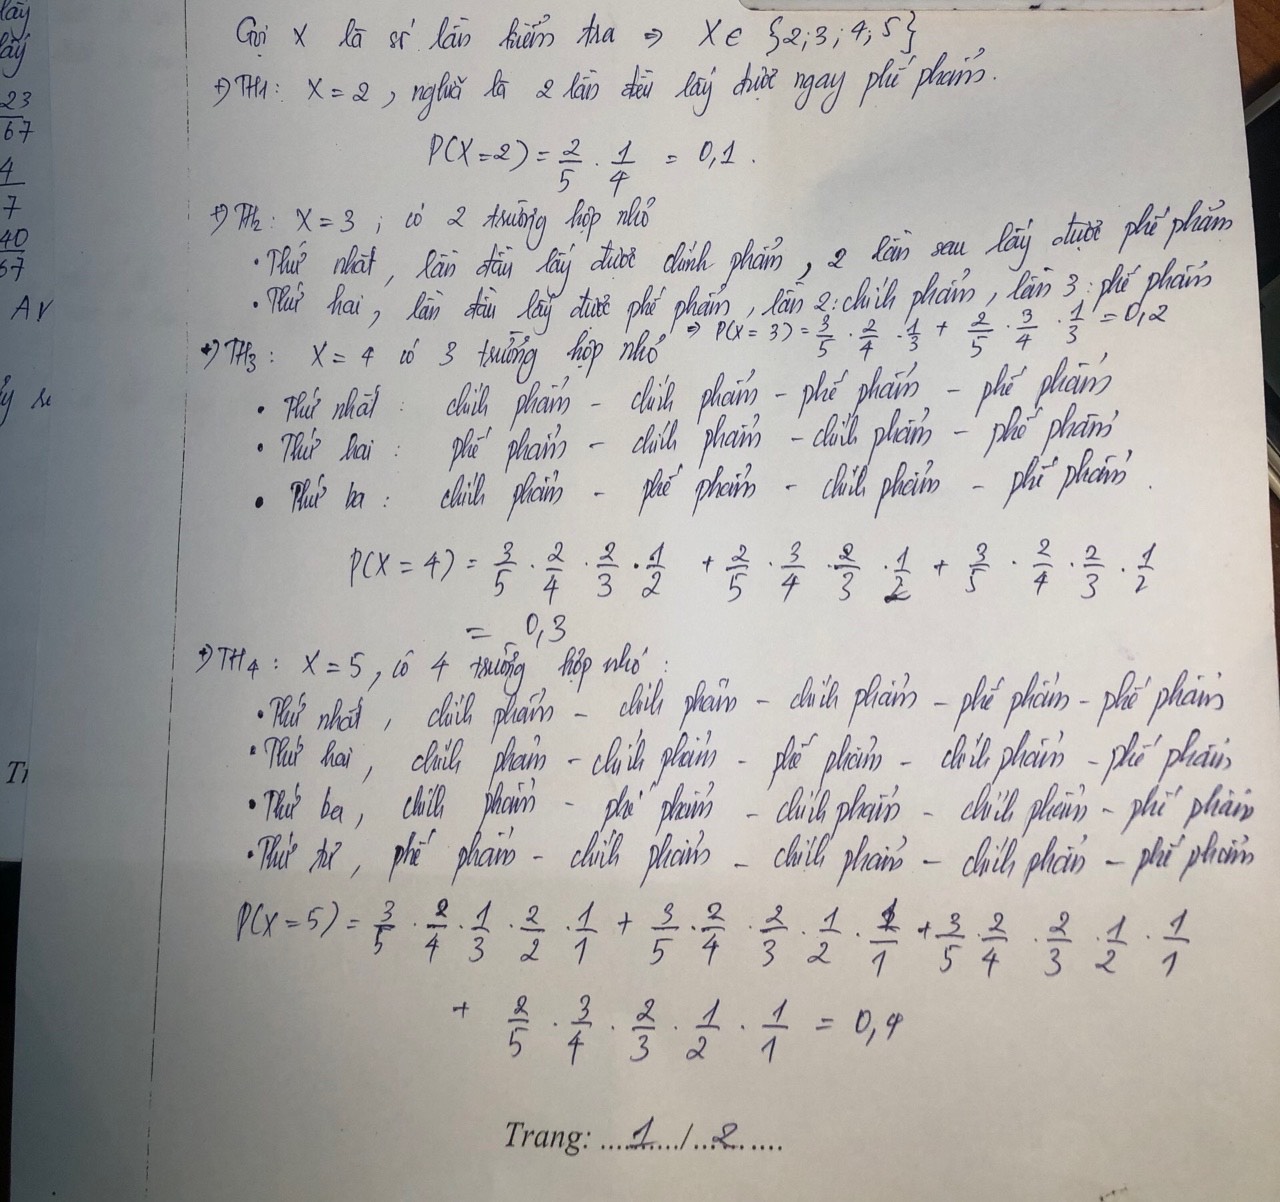 lấy
lấy
23
67
4
7
40
67
AV
Gọi X là số lần kiểm tra ⇒ X ∈ {2; 3; 4; 5}
+) TH1: X = 2, nghĩa là 2 lần đều lấy được ngay phế phẩm.
P(X=2) = 2/5 . 1/4 = 0,1.
+) TH2: X = 3; có 2 trường hợp nhỏ
• Thứ nhất, lần đầu lấy được chính phẩm, 2 lần sau lấy được phế phẩm
• Thứ hai, lần đầu lấy được phế phẩm, lần 2: chính phẩm, lần 3: phế phẩm
⇒ P(X = 3) = 3/5 . 2/4 . 1/3 + 2/5 . 3/4 . 1/3 = 0,2
+) TH3: X = 4 có 3 trường hợp nhỏ
• Thứ nhất: chính phẩm - chính phẩm - phế phẩm - phế phẩm
• Thứ hai: phế phẩm - chính phẩm - chính phẩm - phế phẩm
• Thứ ba: chính phẩm - phế phẩm - chính phẩm - phế phẩm.
P(X = 4) = 3/5 . 2/4 . 2/3 . 1/2 + 2/5 . 3/4 . 2/3 . 1/2 + 3/5 . 2/4 . 2/3 . 1/2
= 0,3
+) TH4: X = 5, có 4 trường hợp nhỏ:
• Thứ nhất, chính phẩm - chính phẩm - chính phẩm - phế phẩm - phế phẩm
• Thứ hai, chính phẩm - chính phẩm - phế phẩm - chính phẩm - phế phẩm
• Thứ ba, chính phẩm - phế phẩm - chính phẩm - chính phẩm - phế phẩm
• Thứ tư, phế phẩm - chính phẩm - chính phẩm - chính phẩm - phế phẩm
P(X = 5) = 3/5 . 2/4 . 1/3 . 2/2 . 1/1 + 3/5 . 2/4 . 2/3 . 1/2 . 1/1 + 3/5 . 2/4 . 2/3 . 1/2 . 1/1
+ 2/5 . 3/4 . 2/3 . 1/2 . 1/1 = 0,4
Trang: ....1..../...2.....